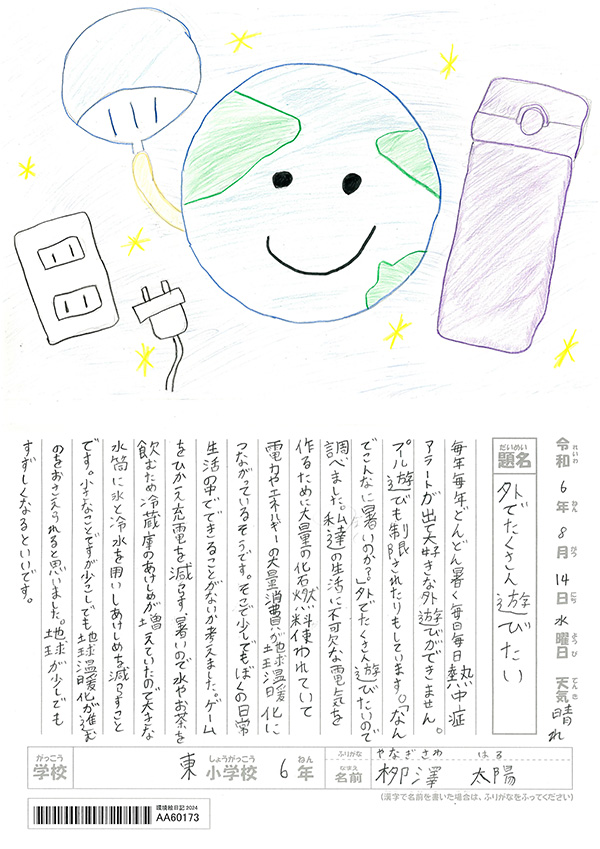 令和6年8月14日水曜日 天気 晴れ
れいわ ねん がつ にち ようび てんき
だいめい
題名 外でたくさん遊びたい
毎年毎年どんどん暑く毎日毎日熱中症
アラートが出て大好きな外遊びができません。
プール遊びも制限されたりもしています。「なん
でこんなに暑いのか?」外でたくさん遊びたいので
調べました。私達の生活に不可欠な電気を
作るために大量の化石燃料使われていて
電力やエネルギーの大量消費が地球温暖化に
つながっているそうです。そこで少しでもぼくの日常
生活の中でできることがないか考えました。ゲーム
をひかえ充電を減らす、暑いので水やお茶を
飲むため冷蔵庫のあけしめが増えていたので大きな
水筒に氷と冷水を用いしあけしめを減らすこと
です。小さなことですが少しでも地球温暖化が進む
のをおさえられると思いました。地球が少しでも
すずしくなるといいです。
がっこう しょうがっこう ねん ふりがな やなぎさわ はる
学校 東小学校 6年 なまえ 名前 栁澤 太陽
(漢字で名前を書いた場合は、ふりがなをふってください)
環境絵日記2024
AA60173